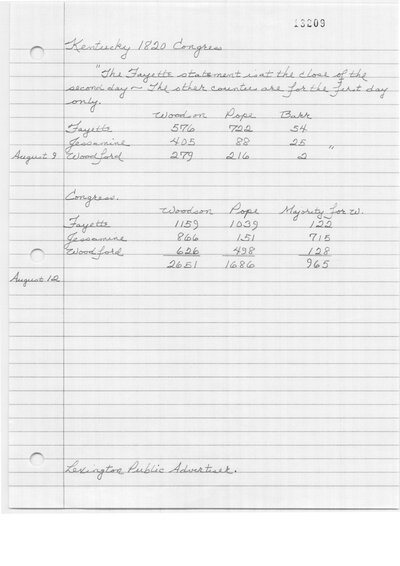 13209
Kentucky 1820 Congress
"The Fayette statement isat the close of the
second day~ The other counties are for the first day
only.
Woodson Pope Barr
Fayette 576 722 54
Jessamine 405 88 25
August 9 Woodford 279 216 2 "
Congress.
Woodson Pope Majority for W.
Fayette 1159 1039 122
Jessamine 866 151 715
Woodford 626 498 128
2651 1686 965
August 12
Lexington Public Advertiser.